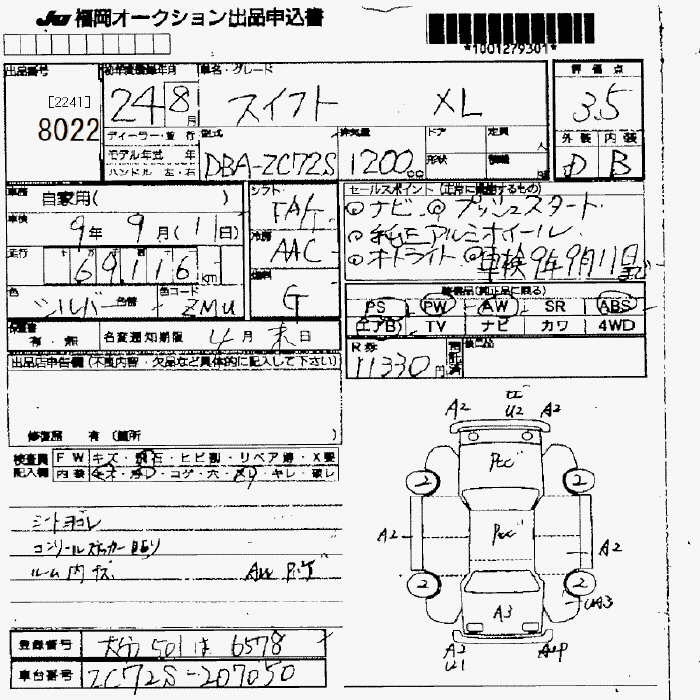 JU 福岡オークション出品申込書
*1001279301*
出品番号 初年度登録年月 車名・グレード 評価点
[2241]
8022
24 8月 スイフト XL 3.5
ディーラー・並行 型式 排気量 ドア 定員 人 外装 内装
モデル年式 年 形状
ハンドル 左・右 DBA-ZC72S 1200cc D B
車歴 自家用( ) シフト FAT セールスポイント(正常に機能するもの)
車検 9年 9月(11日) 冷房 AAC ◎ナビ ◎プッシュスタート
◎純正アルミホイール
走行 69116km 燃料 G ◎オートライト ◎車検9年9月11日まで
色 シルバー 色替 色コード ZMU 装備品(純正品に限る)
PS PW AW SR ABS
エアB TV ナビ カワ 4WD
保証書 有・無 名変通知期限 4月末日
R券 11330円
出品店申告欄(不良内容・欠品など具体的に記入して下さい)
修復歴 有(箇所
検査員記入欄 FW キズ・飛石・ヒビ割・リペア済・X要
内装 キズ・汚レ・コゲ・穴・切レ・破レ
シートヨゴレ
ルーム内キズ
A2 U2 A2
2 2
A2 A2
2 2
A3 UA3
A2
U1
登録番号 501 は 6578
車台番号 ZC72S-207050